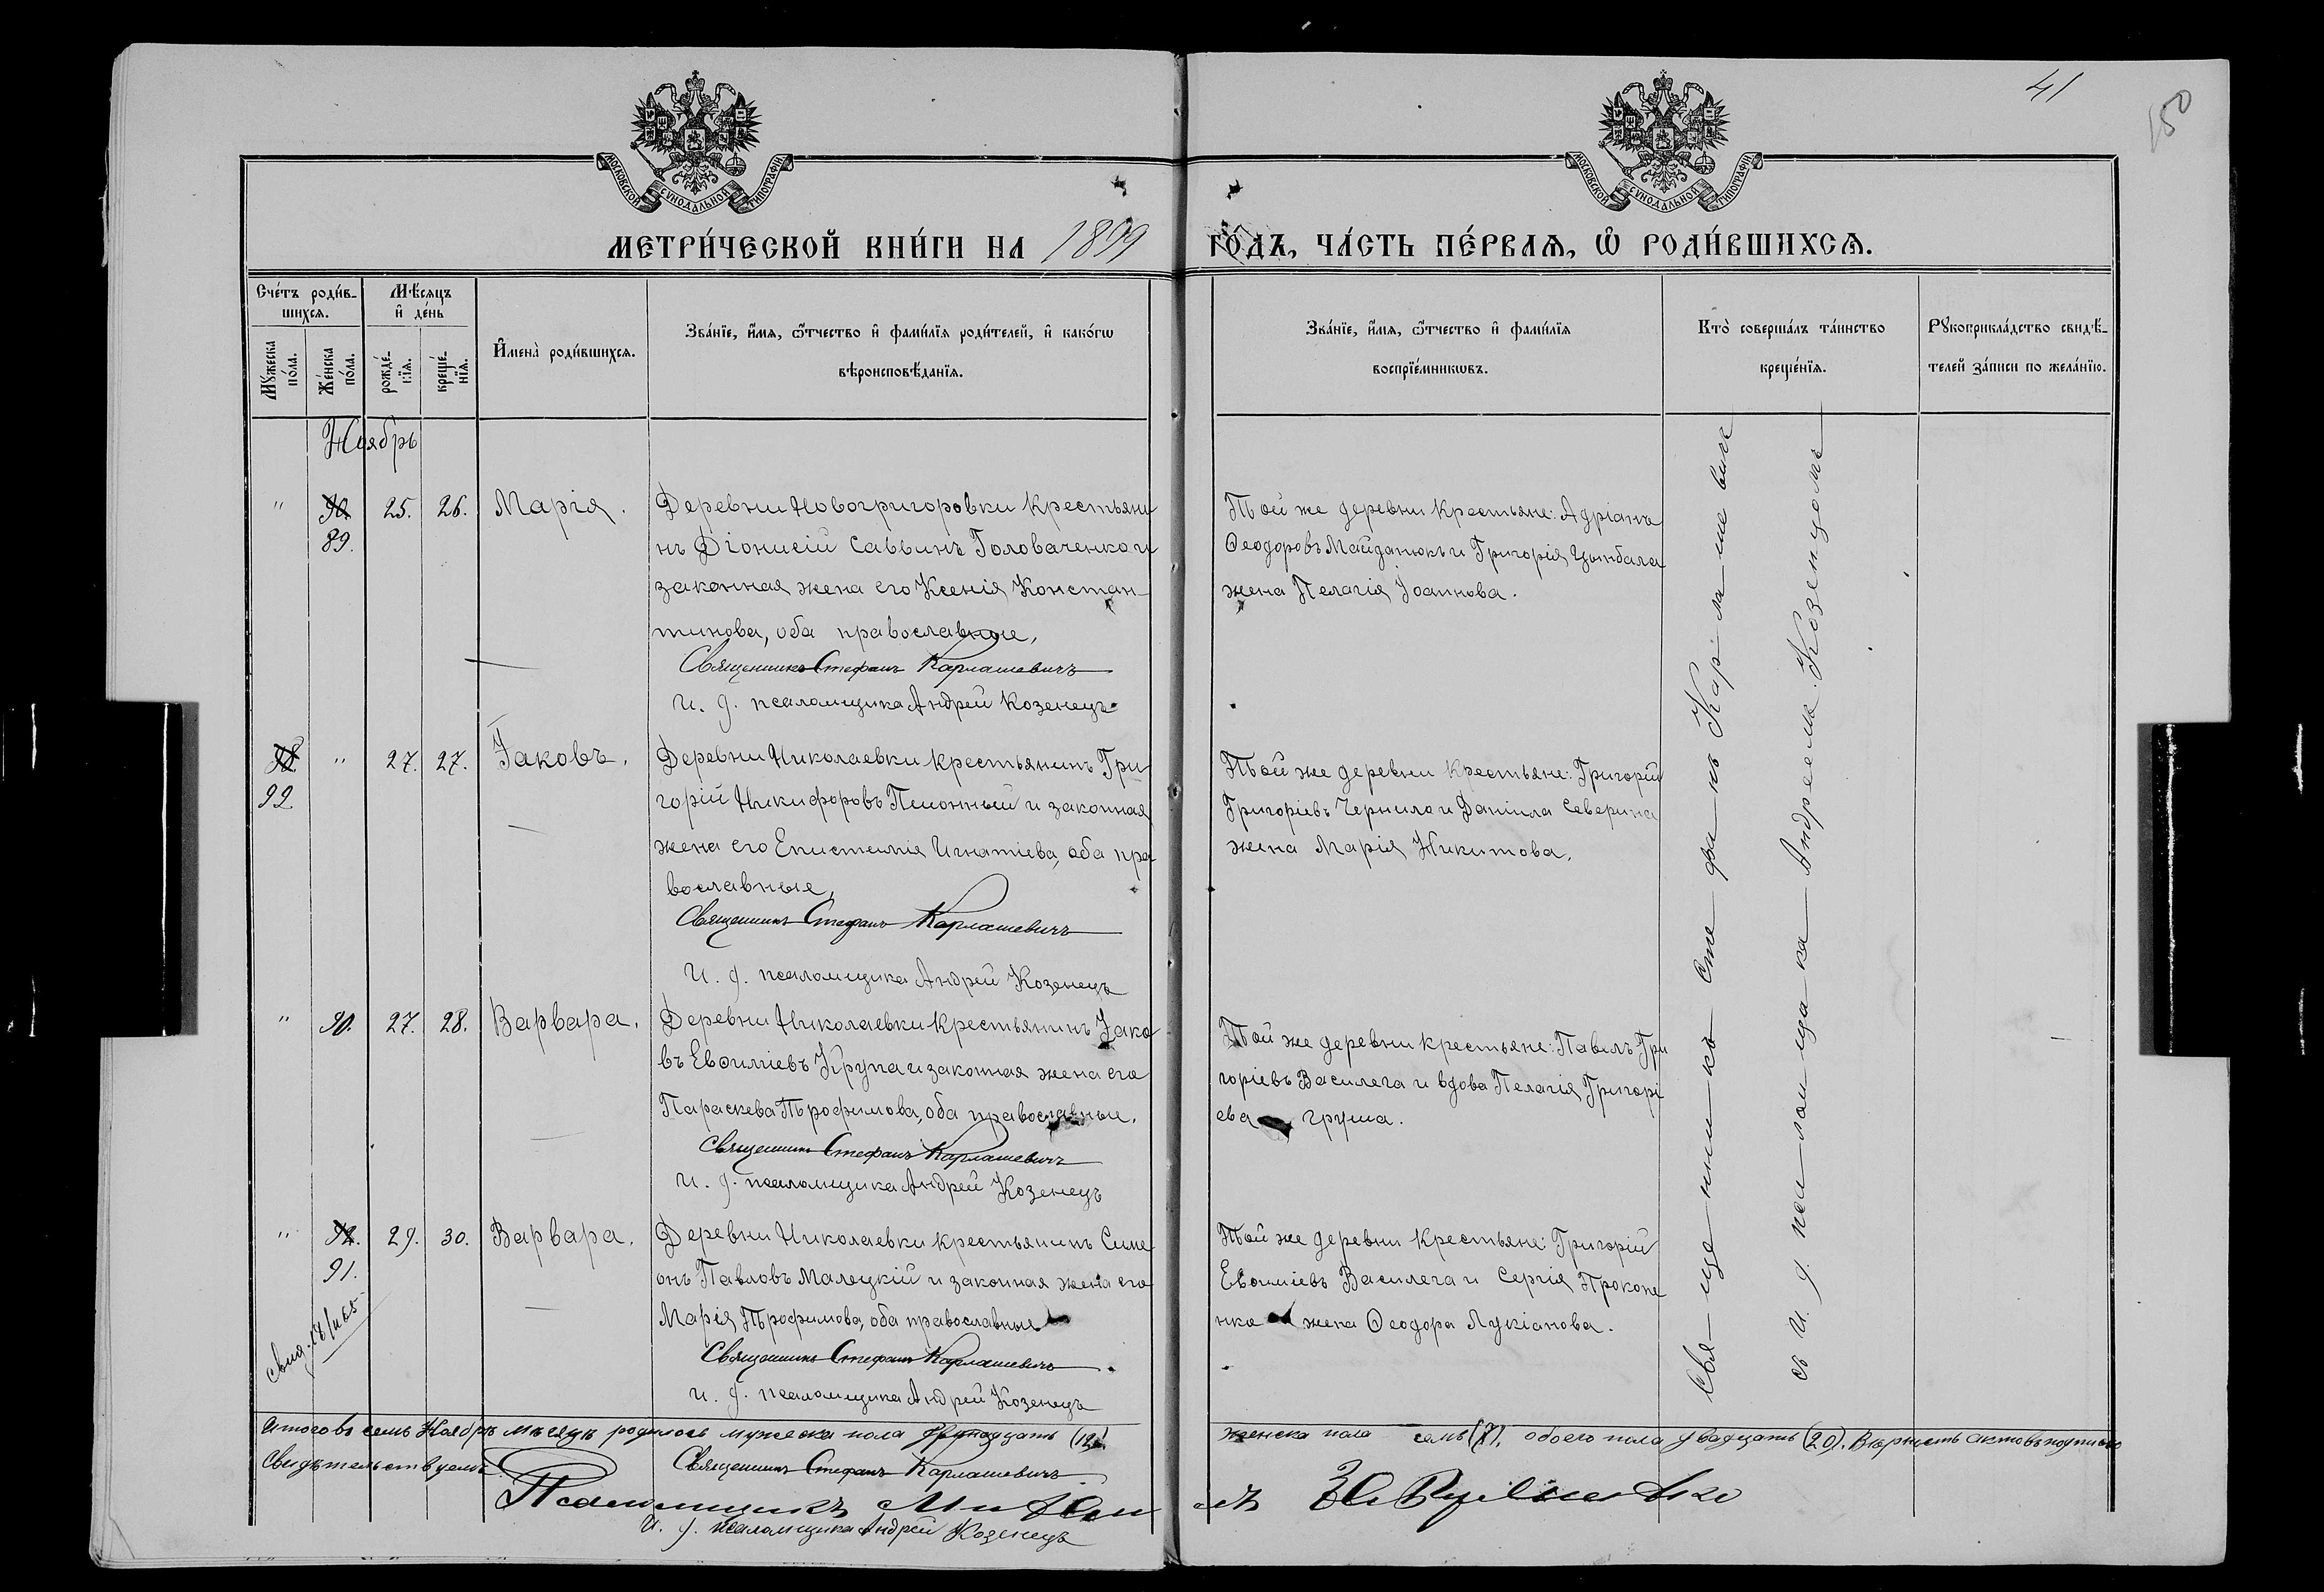 41
150
МОСКОВСКОЙ СѴНОДАЛЬНОЙ ТИПОГРАФІИ
МОСКОВСКОЙ СѴНОДАЛЬНОЙ ТИПОГРАФІИ
МЕТРИ́ЧЕСКОЙ КНИ́ГИ НА 1899 ГО́ДЪ, ЧА́СТЬ ПЕ́РВАѦ, Ѡ҆ РОДИ́ВШИХСѦ.
Сче́тъ роди́в-
шихсѧ.
Мꙋ́жеска по́ла.
Же́нска по́ла.
Мѣ́сѧцъ
и҆ де́нь
рожде́-
нїѧ.
креще́-
нїѧ.
И҆мена̀ роди́вшихсѧ.
Зва́нїе, и҆́мѧ, ѻ҆́тчество и҆ фами́лїѧ роди́телей, и҆ како́гѡ
вѣроисповѣ́данїѧ.
Зва́нїе, и҆́мѧ, ѻ҆́тчество и҆ фами́лїѧ
воспрїе́мникѡвъ.
Кто̀ соверша́лъ та́инство
креще́нїѧ.
Рꙋкоприкла́дство свидѣ́-
телей за́писи по жела́нїю.
Ноябрь
" 90. 25. 26. Марія.
89.
Деревни Новогригоровки крестьяни
нъ Діонисій Саввинъ Головаченко и
законная жена его Ксенія Констан-
тинова, оба православные,
Священникъ Стефанъ Карлашевичъ
И. д. псаломщика Андрей Козенецъ
Той же деревни крестьяне: Адріанъ
Ѳеодоровъ Майданюкъ и Григорія Цымбала
жена Пелагія Іоаннова.
" 27. 27. Іаковъ.
92.
Деревни Николаевки крестьянинъ Гри
горій Никифоровъ Псіонный и законная
жена его Епистимія Игнатіева, оба пра
вославные,
Священникъ Стефанъ Карлашевичъ
И. д. псаломщика Андрей Козенецъ
Той же деревни крестьяне: Григорій
Григоріевъ Чернило и Даніила Северина
жена Марія Никитова.
" 90. 27. 28. Варвара.
Деревни Николаевки крестьянинъ Іако
въ Евѳиміевъ Крупа и законная жена его
Параскева Трофимова, оба православные.
Священникъ Стефанъ Карлашевичъ
И. д. псаломщика Андрей Козенецъ
Той же деревни крестьяне: Павелъ Гри
горіевъ Василега и вдова Пелагія Григорі
ева Груша.
" 92. 29. 30. Варвара.
91.
Деревни Николаевки крестьянинъ Симе
онъ Павловъ Малецкій и законная жена его
Марія Трофимова, оба православные
Священникъ Стефанъ Карлашевичъ
И. д. псаломщика Андрей Козенецъ
Той же деревни крестьяне: Григорій
Евѳиміевъ Василега и Сергія Прокопе
нка жена Ѳеодора Лукіанова.
Свя-ще-нни-къ Сте-фа-нъ Кар-ла-ше-вичъ
съ И. д. псаломщика Андреемъ Козенцомъ
Итого въ семъ Ноябрѣ мѣсяцѣ родилось мужеска пола женска пола семь (7), обоего пола двадцать (20). Вѣрность актовъ подписью
Свидѣтельствуемъ:
Священникъ Стефанъ Карлашевичъ
Псаломщикъ
И. д. псаломщика Андрей Козенецъ